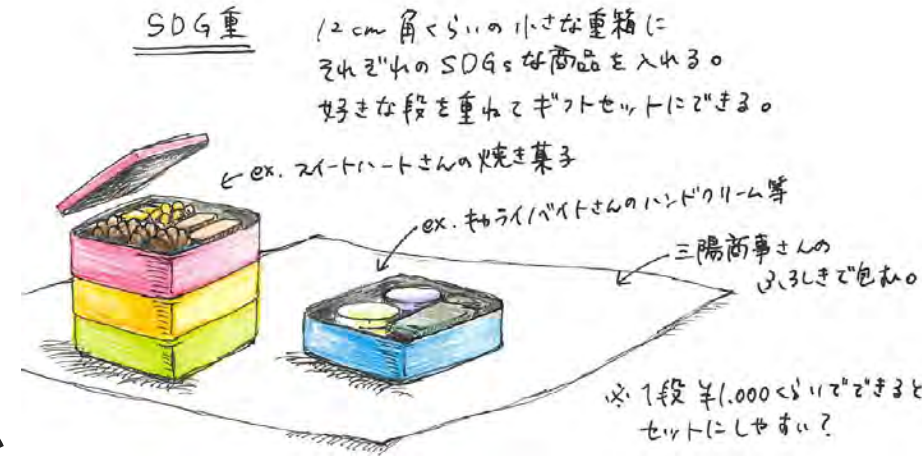 SDG重
12cm角くらいの小さな重箱に
それぞれのSDGsな商品を入れる。
好きな段を重ねてギフトセットにできる。
← ex. スイートハートさんの焼き菓子
ex. キョライノベイトさんのハンドクリーム等
三陽商事さんの
ふろしきで包む。
※ 1段 ¥1.000くらいでできると
セットにしやすい?